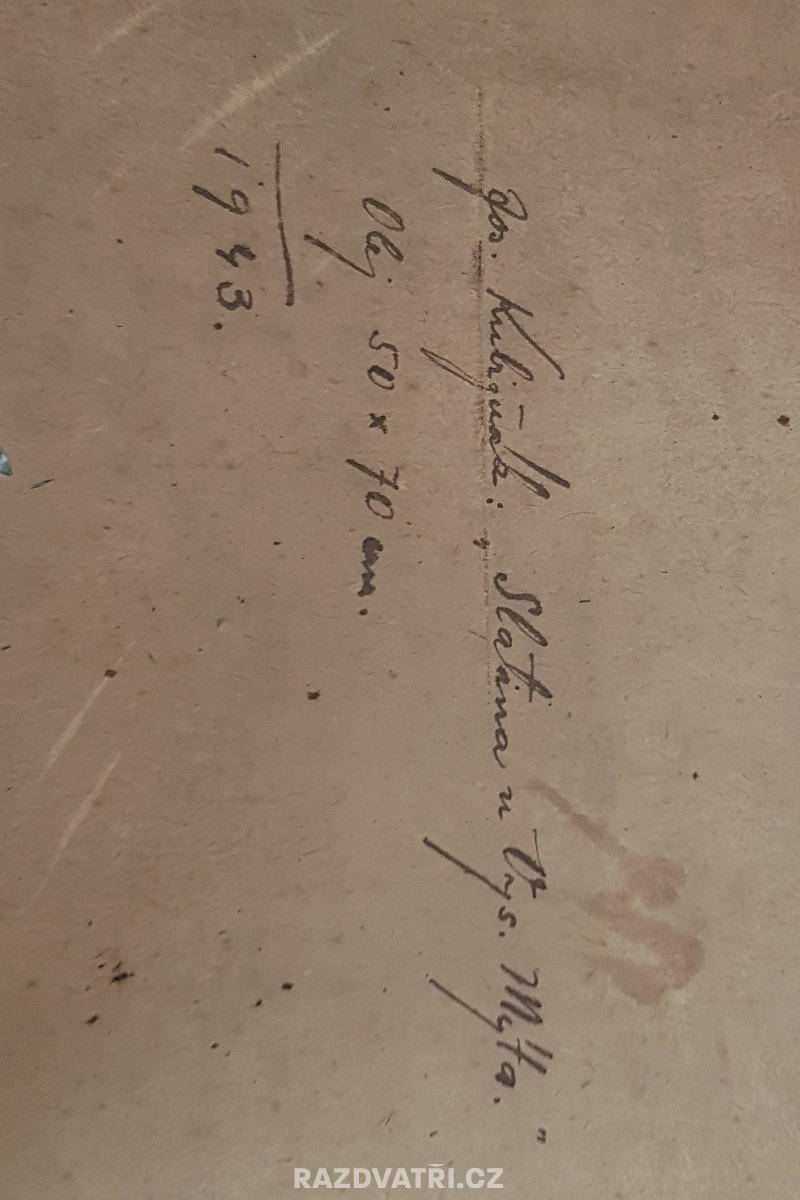 Jos. Kubíček: „Slatina u Vys. Mýta."
Olej 50 x 70 cm.
1943.
RAZDVATŘI.CZ